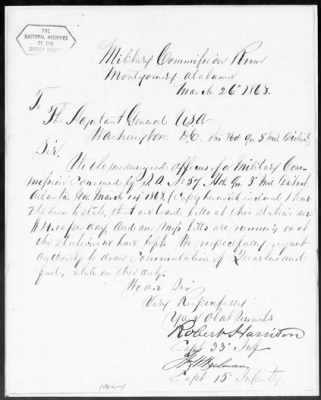 THE
NATIONAL ARCHIVES
OF THE
UNITED STATES
Military Commission Room
Montgomery Alabama
March 26th 1868.
To
The Adjutant General USA
Washington D.C. thro Hd Qrs 3d Mil District
Sir.
We the undersigned officers of a Military Com-
mission Convened by S.O. No 57 Hd Qrs 3d Mil District
Atlanta Ga March 1868. (Copy herewith enclosed) have
the honor to state, that our board bills at this station are
per day. And our mess bills are running on at
the stations we have left. We respectfully request
authority to draw Commutation of Quarters and
fuel, while on this duty.
We are Sir
Very Respectfully
Your Obdt Servants
Robert Harrison
Capt 33" Inf
Capt 15" Infantry